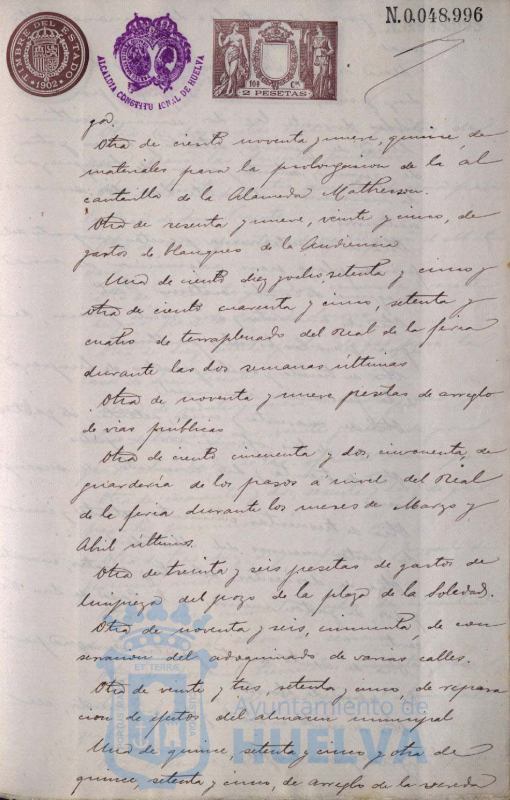 N.0.048,996
TIMBRE DEL ESTADO
1902
ALCALDIA CONSTITUCIONAL DE HUELVA
2 PESETAS
ga.
Otra de ciento noventa y nueve, quince, de
materiales para la prolongacion de la al
cantarilla de la Alameda Matheson.
Otra de sesenta y nueve, veinte y cinco, de
gastos de blanqueo de la Audiencia
Una de ciento diez y ocho, setenta y cinco y
otra de ciento cuarenta y cinco, setenta y
cuatro de terraplenado del Real de la feria
durante las dos semanas últimas
Otra de noventa y nueve pesetas de arreglo
de vias públicas
Otra de ciento cincuenta y dos, cincuenta, de
guardería de los pasos á nivel del Real
de la feria durante los meses de Marzo y
Abril últimos.
Otra de treinta y seis pesetas de gastos de
limpieza del pozo de la plaza de la Soledad.
Otra de noventa y seis, cincuenta, de con
servacion del adoquinado de varias calles.
Otra de veinte y tres, setenta y cinco, de repara
cion de efectos del almacen municipal
Una de quince, setenta y cinco y otra de
quince, setenta y cinco, de arreglo de la vereda
Ayuntamiento de
HUELVA